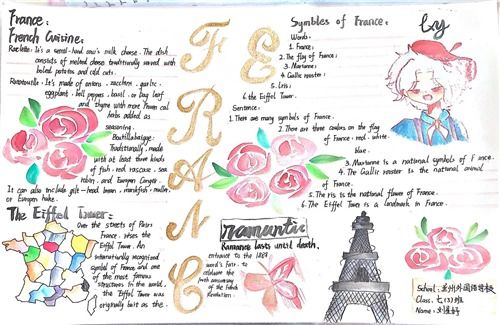 France:
French Cuisine:
Raclette: It's a semi-hard cow's milk cheese. The dish
consists of melted cheese traditionally served with
boiled potatoes and cold cuts.
Ratatouille: It's made of onions, zucchini, garlic,
eggplant, bell pepper, basil, or bay leaf
and thyme with more
herbs added as
seasoning.
Bouillabaisse:
Traditionally, made
with at least three kinds
of fish, red rascasse, sea
robin, and European conger.
It can also include gilt-head bream, monkfish, mullet,
or European hake.
The Eiffel Tower:
Over the streets of Paris
France, rises the
Eiffel Tower. An
internationally recognized
symbol of France and one
of the most famous
structures in the world,
the Eiffel Tower was
originally built as the
FRANCE
romantic
Romance lasts until death.
entrance to the 1889
world's Fair, to
celebrate the
anniversary
of the French
Revolution.
Symbles of France:
Words:
1. France:
2. The flag of France:
3. Marianne:
4. Gallic rooster:
5. Iris:
6. the Eiffel Tower.
Sentence:
1. There are many symbols of France.
2. There are three colors on the flag
of France - red, white,
blue.
3. Marianne is a national symbols of France.
4. The Gallic rooster is the national animal
of France.
5. The iris is the national flower of France.
6. The Eiffel Tower is a landmark in France.
by
School:
Class: 七(3)班
Name: